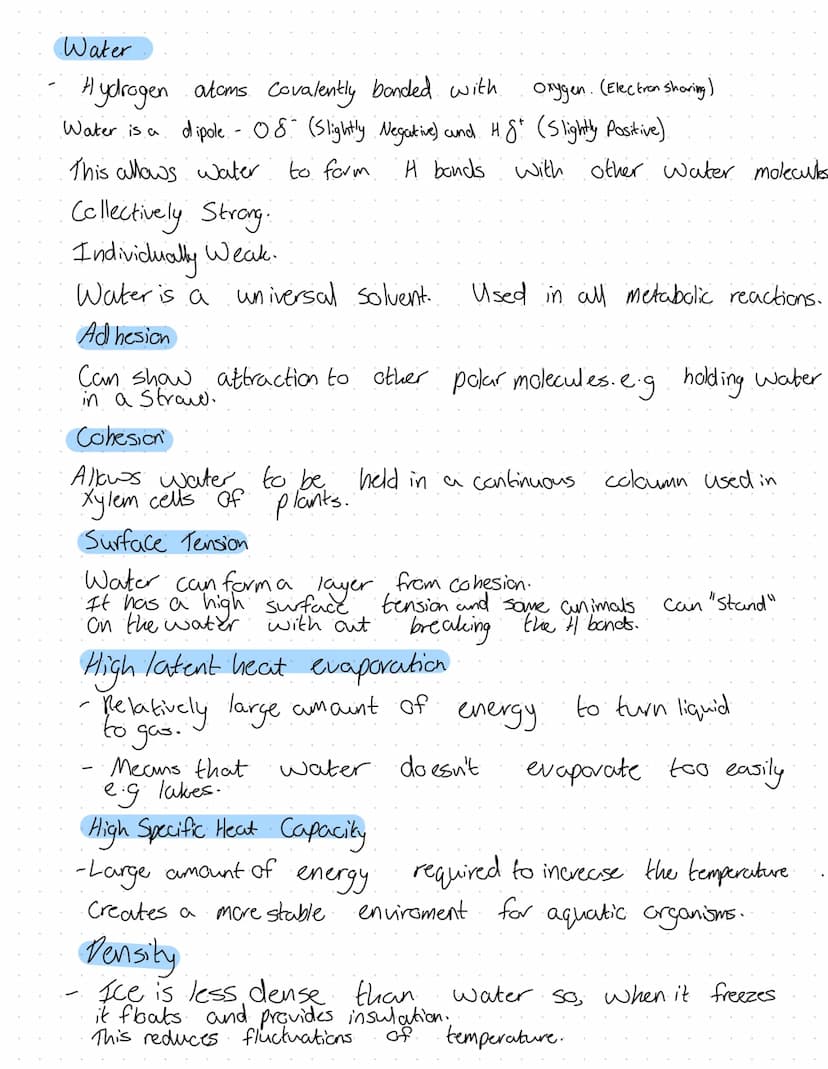 Water
- Hydrogen atoms covalently bonded with oxygen. (Electron sharing)
Water is a dipole - Oδ⁻ (Slightly Negative) and Hδ⁺ (Slightly Positive)
This allows water to form H bonds with other water molecules
Collectively Strong.
Individually Weak.
Water is a universal solvent. Used in all metabolic reactions.
Adhesion
Can show attraction to other polar molecules. e.g holding water
in a straw.
Cohesion
Allows water to be held in a continuous coloumn used in
Xylem cells of plants.
Surface Tension
Water can form a layer from cohesion.
It has a high surface tension and some animals can "stand"
on the water with out breaking the H bonds.
High latent heat evaporation
- Relatively large amount of energy to turn liquid
to gas.
- Means that water doesn't evaporate too easily
e.g lakes.
High Specific Heat Capacity
- Large amount of energy required to increase the temperature.
Creates a more stable enviroment for aquatic organisms.
Density
- Ice is less dense than water so, when it freezes
it floats and provides insulation.
This reduces fluctuations of temperature.